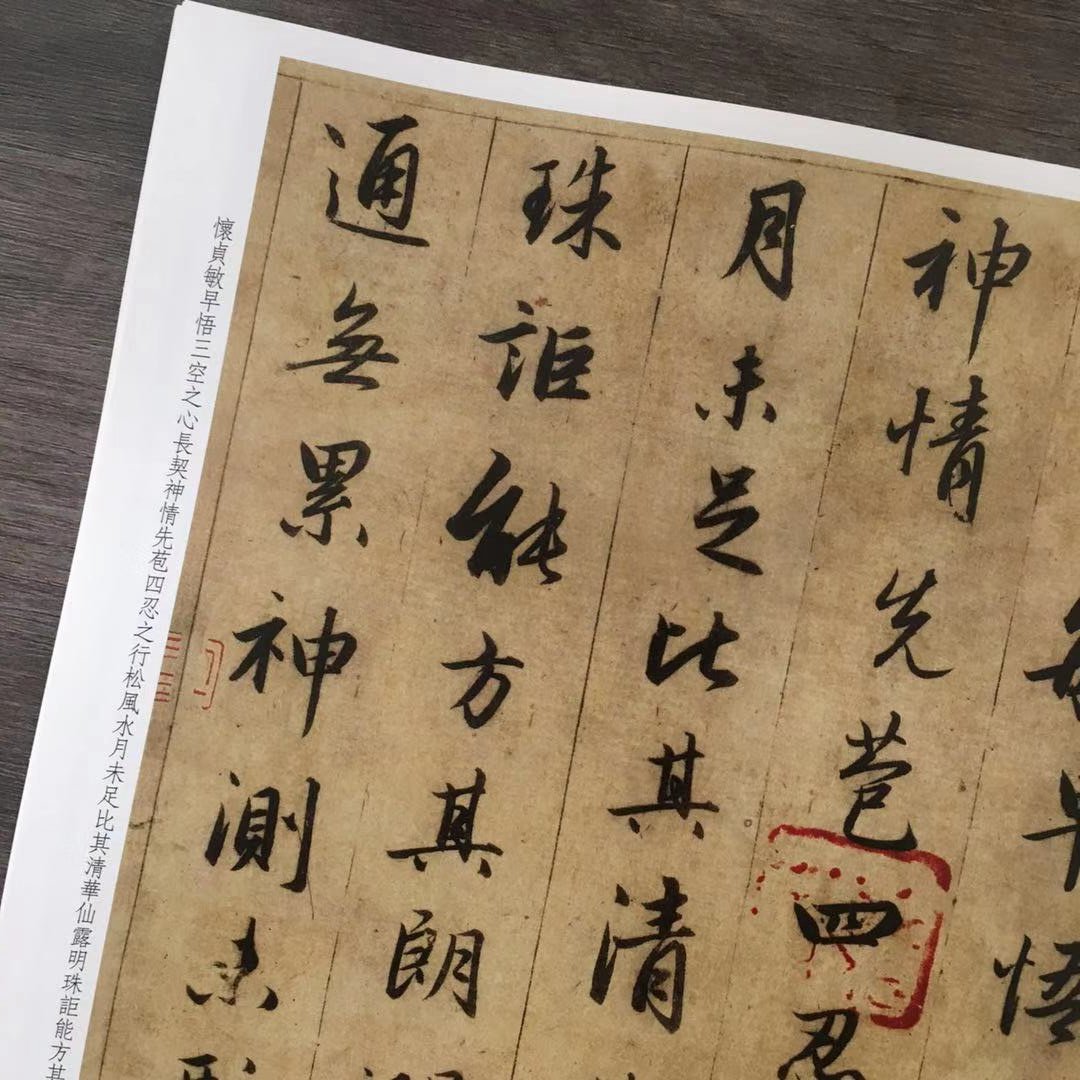 早悟
神情先苞四忍
月未足比其清
珠詎能方其朗
通無累神測未
懷貞敏早悟三空之心長契神情先苞四忍之行松風水月未足比其清華仙露明珠詎能方其